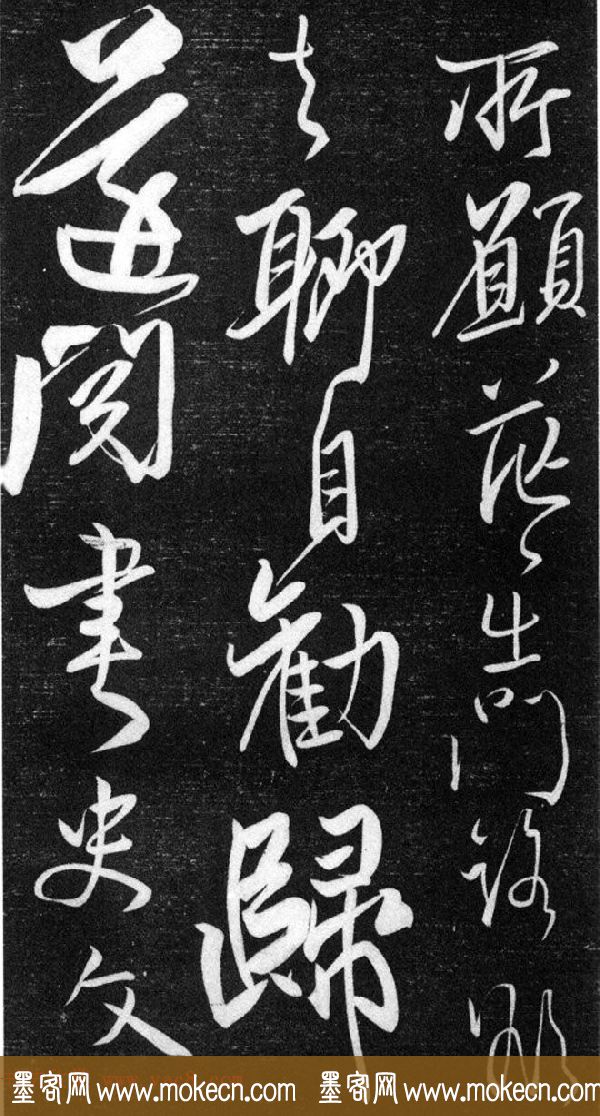 所願茫出門路
聊自勸歸
閱書史文
墨客网 www.mokecn.com 墨客网 www.mokecn.com